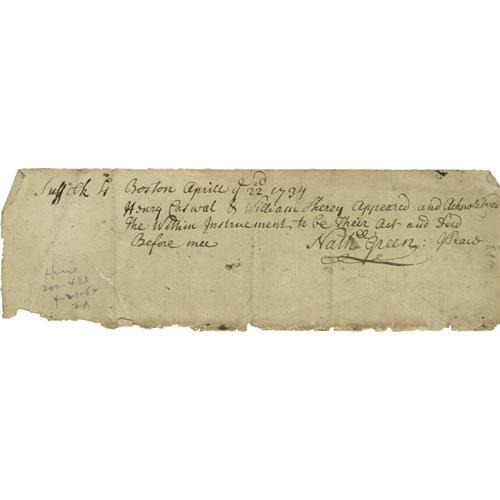 Suffolk ss Boston Aprill ye 22d 1734
Henry Caswal & William Sherey Appeared and Acknoledged
the Within Instruement, to be Their Act and Deed
Before mee Nathll Green: JPeace
200-483
4-21-52